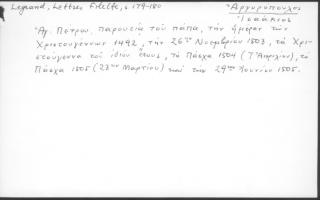 Legrand, Lettres Filelfe, σ. 179-180
Ἀργυρόπουλος
Ἰσαάκιος
Ἁγ. Πέτρου, παρουσία τοῦ πάπα, τὴν ἡμέραν τῶν
Χριστουγέννων 1492, τὴν 26ην Νοεμβρίου 1503, τὰ Χρι-
στούγεννα τοῦ ἰδίου ἔτους, τὸ Πάσχα 1504 (7 Ἀπριλίου), τὸ
Πάσχα 1505 (23ην Μαρτίου) καὶ τὴν 29ην Ἰουνίου 1505.